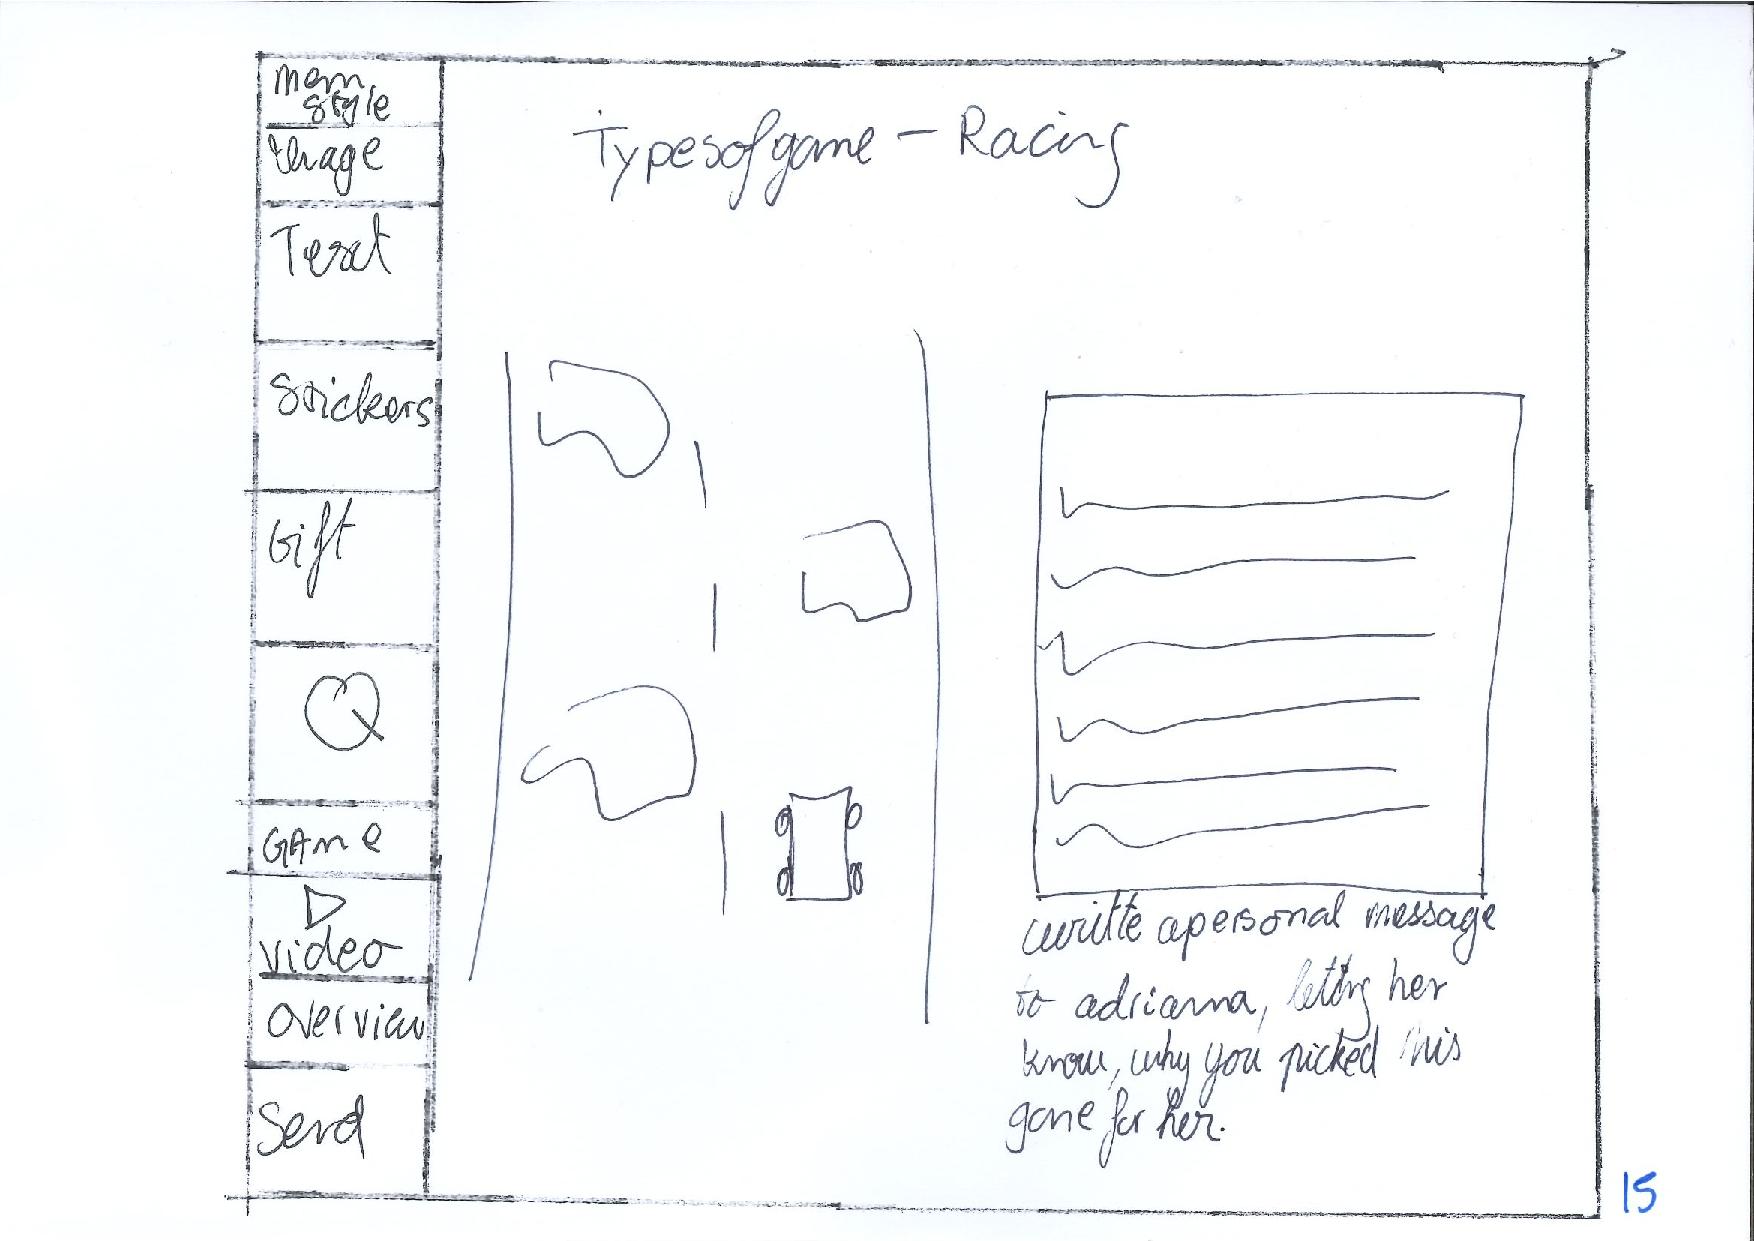 Mem
style
Image
Text
Stickers
Gift
GAme
video
Overview
Send
Types of game - Racing
writte a personal message
to adrianna, letting her
know, why you picked this
game for her.
15